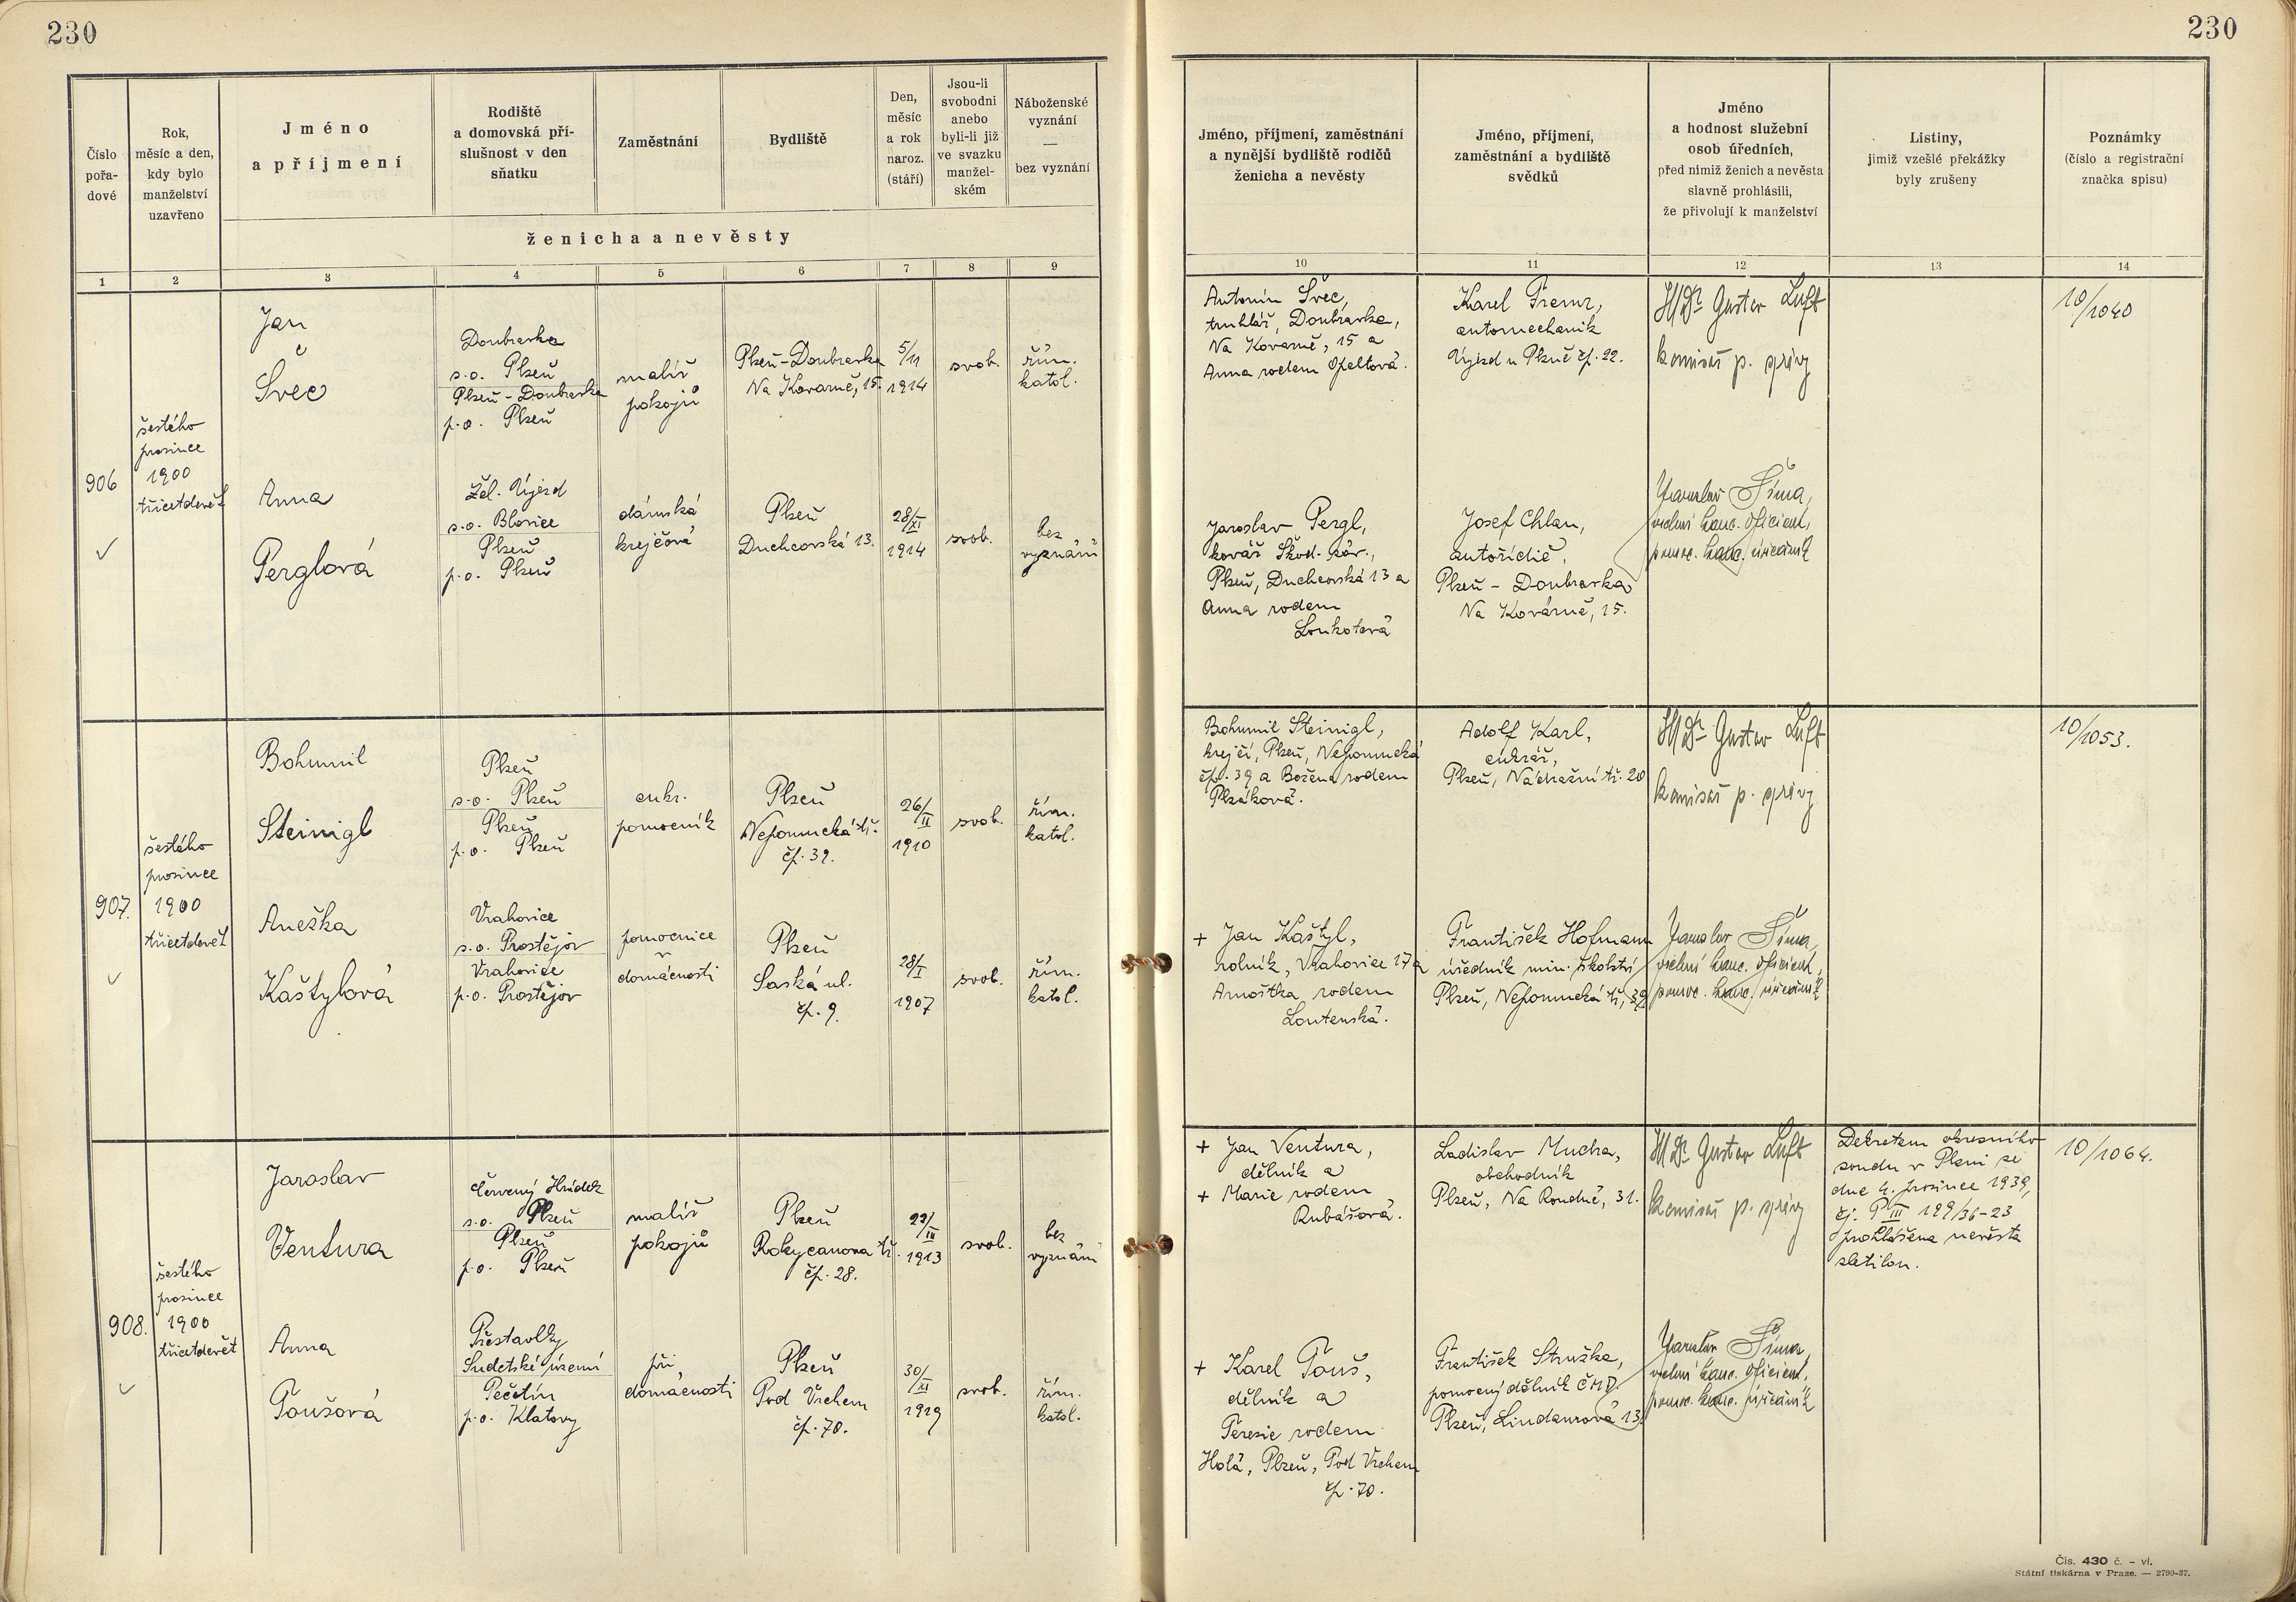 230
230
Číslo
pořa-
dové
Rok,
měsíc a den,
kdy bylo
manželství
uzavřeno
Jméno
a příjmení
Rodiště
a domovská pří-
slušnost v den
sňatku
Zaměstnání
Bydliště
Den,
měsíc
a rok
naroz.
(stáří)
Jsou-li
svobodni
anebo
byli-li již
ve svazku
manžel-
ském
Náboženské
vyznání
—
bez vyznání
ženicha a nevěsty
Jméno, příjmení, zaměstnání
a nynější bydliště rodičů
ženicha a nevěsty
Jméno, příjmení,
zaměstnání a bydliště
svědků
Jméno
a hodnost služební
osob úředních,
před nimiž ženich a nevěsta
slavně prohlásili,
že přivolují k manželství
Listiny,
jimiž vzešlé překážky
byly zrušeny
Poznámky
(číslo a registrační
značka spisu)
1 2 3 4 5 6 7 8 9 10 11 12 13 14
906
šestého
prosince
1900
třicetdevět
Jan
Švec
Doubravka
s.o. Plzeň
Plzeň-Doubravka
p.o. Plzeň
malíř
pokojů
Plzeň-Doubravka
Na Kovárně, 15.
5/11
1914
svob.
řím.
katol.
Anna
Perglová
Žel. Újezd
s.o. Blovice
Plzeň
p.o. Plzeň
dámská
krejčová
Plzeň
Duchcovská 13.
28/XI
1914
svob.
bez
vyznání
Antonín Švec,
truhlář, Doubravka,
Na Kovárně, 15 a
Anna rodem Opeltová.
Karel Fremr,
automechanik
Újezd u Plzně čp. 22.
JUDr Gustav Luft
komisař p. správy
10/1040
Jaroslav Pergl,
kovář Škod. záv.,
Plzeň, Duchcovská 13 a
Anna rodem
Loukotová
Josef Chlan,
autořidič,
Plzeň - Doubravka
Na Kovárně, 15.
Jaroslav Šíma,
vrchní kanc. oficient,
pomoc. kanc. úředník
907.
šestého
prosince
1900
třicetdevět
Bohumil
Steinigl
Plzeň
s.o. Plzeň
Plzeň
p.o. Plzeň
cukr.
pomocník
Plzeň
Nepomucká tř.
čp. 39.
26/II
1910
svob.
řím.
katol.
Aneška
Kaštylová
Vrahovice
s.o. Prostějov
Vrahovice
p.o. Prostějov
pomocnice
v
domácnosti
Plzeň
Saská ul.
čp. 9.
28/I
1907
svob.
řím.
katol.
Bohumil Steinigl,
krejčí, Plzeň, Nepomucká
čp. 39 a Božena rodem
Plzáková.
Adolf Karl,
cukrář,
Plzeň, Nádražní tř. 20
JUDr Gustav Luft
komisař p. správy
10/1053.
+ Jan Kaštyl,
rolník, Vrahovice 17 a
Arnoštka rodem
Loutenská.
František Hofmann
úředník min. školství
Plzeň, Nepomucká tř, 39
Jaroslav Šíma,
vrchní kanc. oficient,
pomoc. kanc. úředník
908.
šestého
prosince
1900
třicetdevět
Jaroslav
Ventura
Červený Hrádek
s.o. Plzeň
Plzeň
p.o. Plzeň
malíř
pokojů
Plzeň
Rokycanova tř.
čp. 28.
22/III
1913
svob.
bez
vyznání
Anna
Toušová
Přestavlky
Sudetské území
Pečetín
p.o. Klatovy
při
domácnosti
Plzeň
Pod Vrchem
čp. 70.
30/XI
1919
svob.
řím.
katol.
+ Jan Ventura,
dělník a
+ Marie rodem
Rubášová.
Ladislav Mucha,
obchodník
Plzeň, Na Roudné, 31.
JUDr Gustav Luft
komisař p. správy
Dekretem okresního
soudu v Plzni ze
dne 4. prosince 1939,
čj. P III 199/36-23
prohlášena nevěsta
zletilou.
10/1064.
+ Karel Touš,
dělník a
Terezie rodem
Holá, Plzeň, Pod Vrchem
čp. 70.
František Stružka,
pomocný dělník ČMD.
Plzeň, Lindaurová 13.
Jaroslav Šíma,
vrchní kanc. oficient,
pomoc. kanc. úředník
Čís. 430 č. – vl.
Státní tiskárna v Praze. — 2790-37.